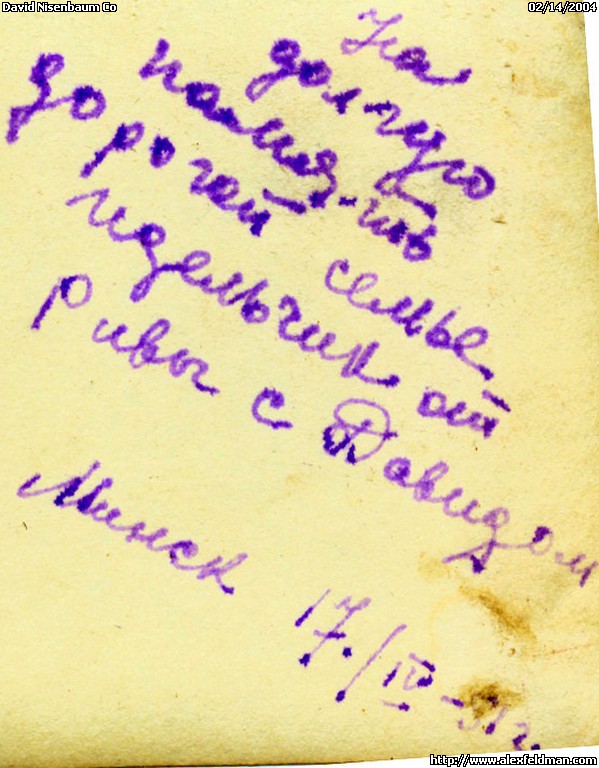 David Nisenbaum Co
02/14/2004
На
долгую
память
дорогой семье
Идельчик от
Ривы с Давидом
Минск
17/IV-51г.
http://www.alexfeldman.com